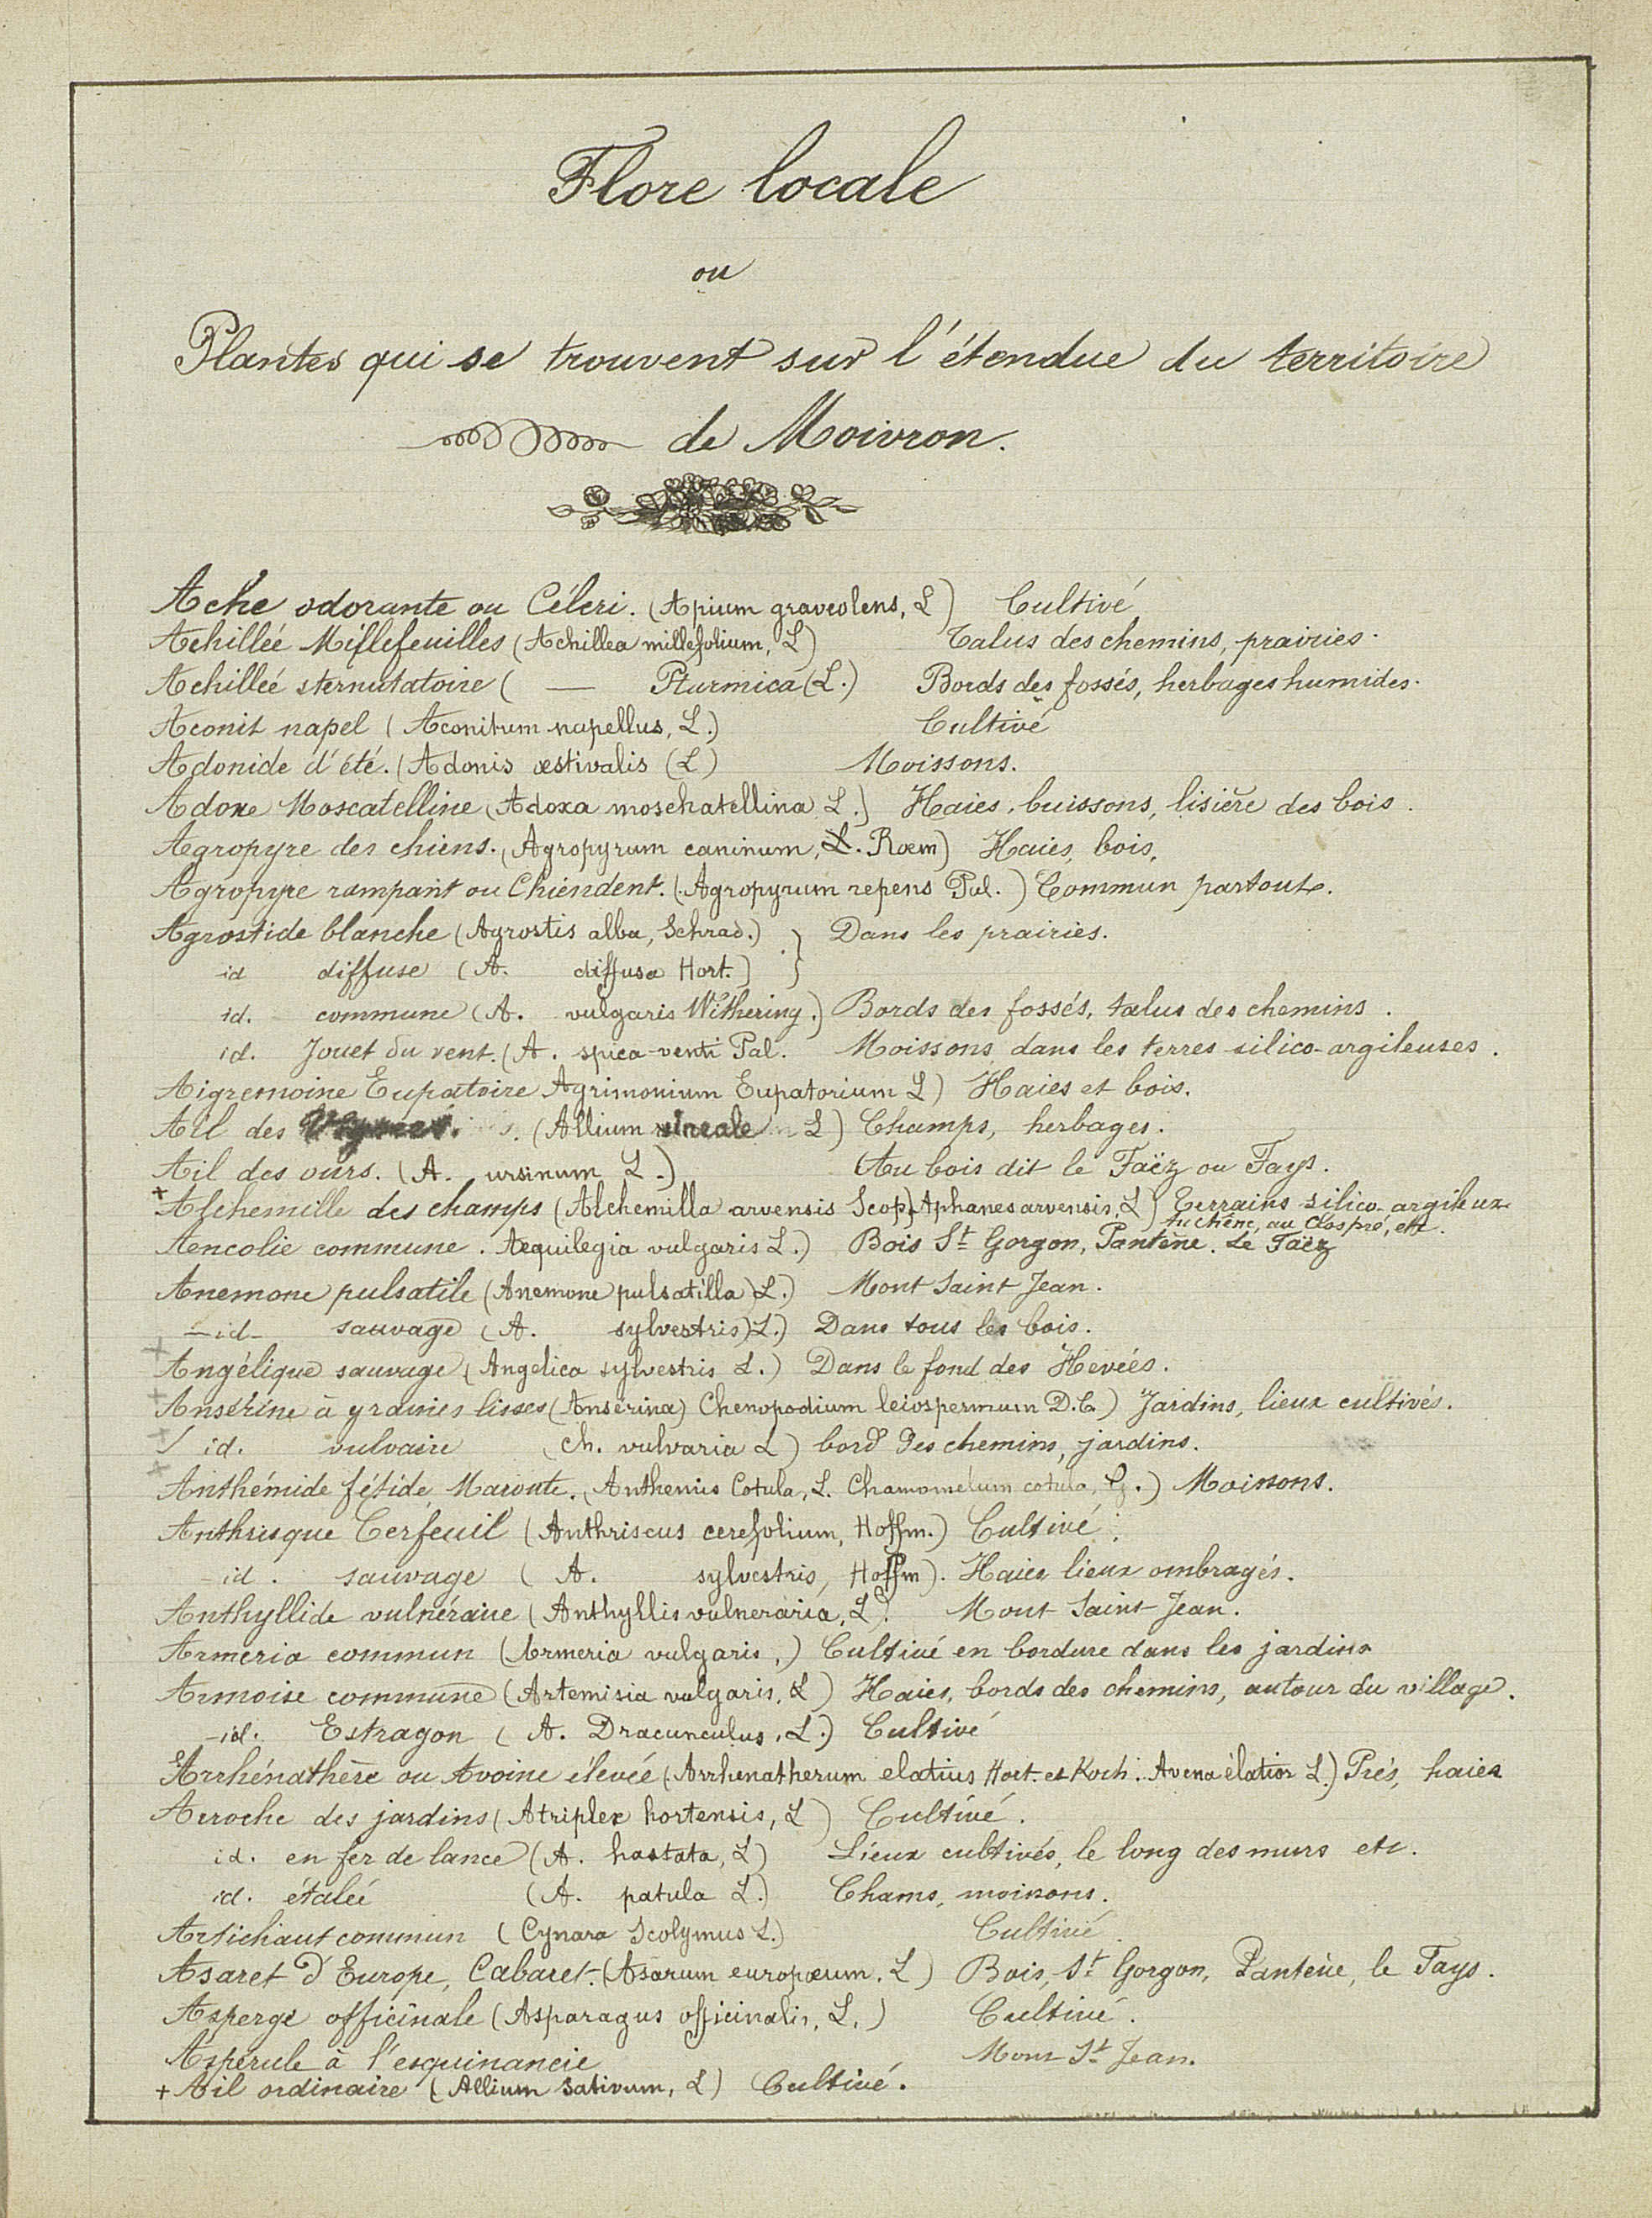 Flore locale
ou
Plantes qui se trouvent sur l'étendue du territoire
de Moivron.
Ache odorante ou Céleri. (Apium graveolens, L) Cultivé
Achillée Millefeuilles (Achillea millefolium, L) Talus des chemins, prairies.
Achilleé sternutatoire ( — Pturmica (L.) Bords des fossés, herbages humides.
Aconit napel (Aconitum napellus, L.) Cultivé
Adonide d'été. (Adonis æstivalis (L) Moissons.
Adoxe Moscatelline (Adoxa moschatellina L.) Haies, buissons, lisière des bois.
Agropyre des chiens. (Agropyrum caninum, L. Rœm) Haies, bois,
Agropyre rampant ou Chiendent. (Agropyrum repens Pal.) Commun partout.
Agrostide blanche (Agrostis alba, Schrad.) } Dans les prairies.
id diffuse (A. diffusa Hort.) }
id. commune (A. vulgaris Withering.) Bords des fossés, talus des chemins.
id. Jouet du vent. (A. spica-venti Pal. Moissons dans les terres silico-argileuses.
Aigremoine Eupatoire Agrimonium Eupatorium L) Haies et bois.
Ail des (Allium vineale L) Champs, herbages.
Ail des ours. (A. ursinum L.) (Au bois dit le Faëz ou Fays.
+ Alchemille des champs (Alchemilla arvensis Scop) Aphanes arvensis, L) Terrains silico-argileux
Au chêne, au Clospré, etc.
Aencolie commune. Aequilegia vulgaris L.) Bois St Gorgon, Pantène. Le Faëz
Anemone pulsatile (Anemone pulsatilla) L.) Mont Saint Jean.
—id— sauvage (A. sylvestris) L.) Dans tous les bois.
+ Angélique sauvage (Angelica sylvestris L.) Dans le fond des Hevées.
+ Ansérine à graines lisses (Anserina) Chenopodium leiospermum D.C.) Jardins, lieux cultivés.
+ / id. vulvaire (ch. vulvaria L) bord des chemins, jardins.
+ Anthémide fétide, Maroute. (Anthemis Cotula, L. Chamomelum cotula, .) Moissons.
Anthrisque Cerfeuil (Anthriscus cerefolium, Hoffm.) Cultivé.
—id. sauvage (A. sylvestris, Hoffm). Haies lieux ombragés.
Anthyllide vulnéraire (Anthyllis vulneraria, L). Mont Saint Jean.
Armeria commun (Armeria vulgaris,) Cultivé en bordure dans les jardins
Armoise commune (Artemisia vulgaris, L) Haies, bords des chemins, autour du village.
—id. Estragon (A. Dracunculus, L.) Cultivé
Arrhénathère ou Avoine élevée (Arrhenatherum elatius Hort. et Koch. Avena élatior L.) Prés, haies
Arroche des jardins (Atriplex hortensis, L) Cultivé.
id. en fer de lance (A. hastata, L) Lieux cultivés, le long des murs etc.
id. étalée (A. patula L.) Chams, moissons.
Artichaut commun (Cynara Scolymus L.) Cultivé.
Asaret d'Europe, Cabaret. (Asarum europœum. L) Bois, St Gorgon, Pantène, le Fays.
Asperge officinale (Asparagus officinalis, L.) Cultivé.
Aspérule à l'esquinancie Mont St Jean.
+ Ail ordinaire (Allium Sativum, L) Cultivé.